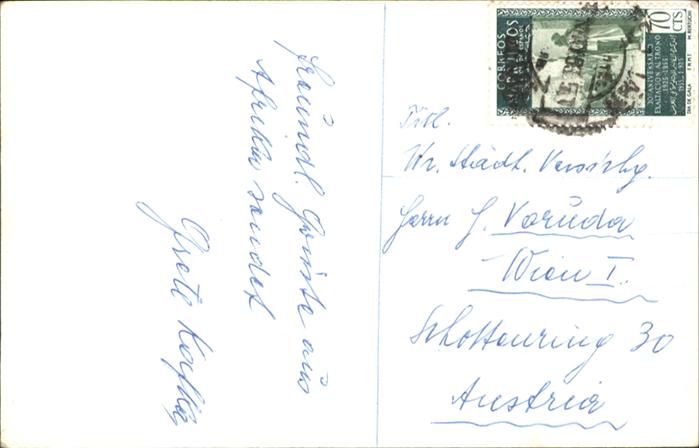 Freundl. Grüße aus
Afrika sendet
Grete Kafka
70
CTS
CORREOS
MARRUECOS
XXX ANIVERSARIO
EXALTACION AL TRONO
1925-1955
DIA DE GALA F.N.M.T.
Titl.
Wr. Städt. Versichg.
Herrn J. Voruda
Wien I.
Schottenring 30
Austria